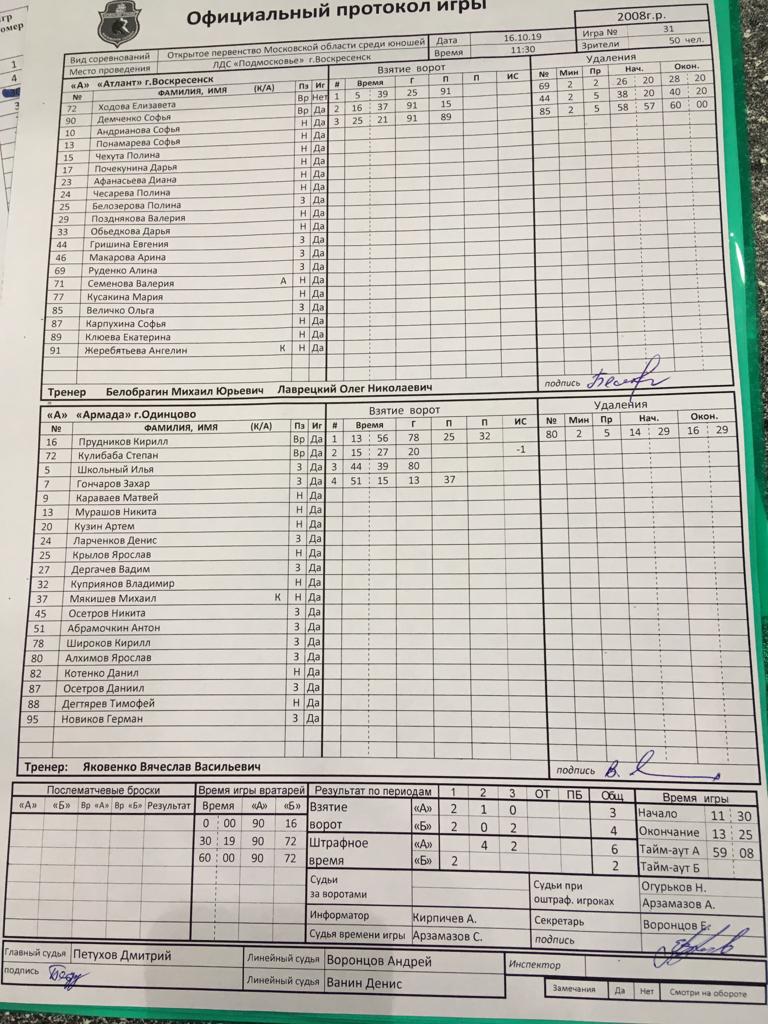 Официальный протокол игры
2008г.р.
Вид соревнований Открытое первенство Московской области среди юношей Дата 16.10.19 Игра № 31
Место проведения ЛДС «Подмосковье» г.Воскресенск Время 11:30 Зрители 50 чел.
«А» «Атлант» г.Воскресенск Взятие ворот Удаления
№ ФАМИЛИЯ, ИМЯ (К/А) Пз Иг # Время Г П П ИС № Мин Пр Нач. Окон.
72 Ходова Елизавета Вр Нет 1 5 39 25 91 69 2 2 26 20 28 20
90 Демченко Софья Вр Да 2 16 37 91 15 44 2 5 38 20 40 20
10 Андрианова Софья Н Да 3 25 21 91 89 85 2 5 58 57 60 00
13 Понамарева Софья Н Да
15 Чехута Полина Н Да
17 Почекунина Дарья Н Да
23 Афанасьева Диана Н Да
24 Чесарева Полина Н Да
25 Белозерова Полина З Да
29 Позднякова Валерия Н Да
33 Обьедкова Дарья Н Да
44 Гришина Евгения З Да
46 Макарова Арина З Да
69 Руденко Алина З Да
71 Семенова Валерия А Н Да
77 Кусакина Мария Н Да
85 Величко Ольга З Да
87 Карпухина Софья Н Да
89 Клюева Екатерина Н Да
91 Жеребятьева Ангелин К Н Да
Тренер Белобрагин Михаил Юрьевич Лаврецкий Олег Николаевич подпись
«А» «Армада» г.Одинцово Взятие ворот Удаления
№ ФАМИЛИЯ, ИМЯ (К/А) Пз Иг # Время Г П П ИС № Мин Пр Нач. Окон.
16 Прудников Кирилл Вр Да 1 13 56 78 25 32 80 2 5 14 29 16 29
72 Кулибаба Степан Вр Да 2 15 27 20 -1
5 Школьный Илья З Да 3 44 39 80
7 Гончаров Захар З Да 4 51 15 13 37
9 Караваев Матвей Н Да
13 Мурашов Никита Н Да
20 Кузин Артем Н Да
24 Ларченков Денис З Да
25 Крылов Ярослав Н Да
27 Дергачев Вадим З Да
32 Куприянов Владимир Н Да
37 Мякишев Михаил К Н Да
45 Осетров Никита З Да
51 Абрамочкин Антон З Да
78 Широков Кирилл З Да
80 Алхимов Ярослав З Да
82 Котенко Данил Н Да
87 Осетров Даниил З Да
88 Дегтярев Тимофей Н Да
95 Новиков Герман З Да
Тренер: Яковенко Вячеслав Васильевич подпись
Послематчевые броски Время игры вратарей Результат по периодам 1 2 3 ОТ ПБ Общ Время игры
«А» «Б» Вр «А» Вр «Б» Результат Время «А» «Б» Взятие «А» 2 1 0 3 Начало 11 30
0 00 90 16 ворот «Б» 2 0 2 4 Окончание 13 25
30 19 90 72 Штрафное «А» 4 2 6 Тайм-аут А 59 08
60 00 90 72 время «Б» 2 2 Тайм-аут Б
Судьи за воротами Судьи при оштраф. игроках Огурьков Н.
Арзамазов А.
Информатор Кирпичев А. Секретарь Воронцов Е.
Судья времени игры Арзамазов С. подпись
Главный судья Петухов Дмитрий Линейный судья Воронцов Андрей Инспектор
подпись Линейный судья Ванин Денис Замечания Да Нет Смотри на обороте